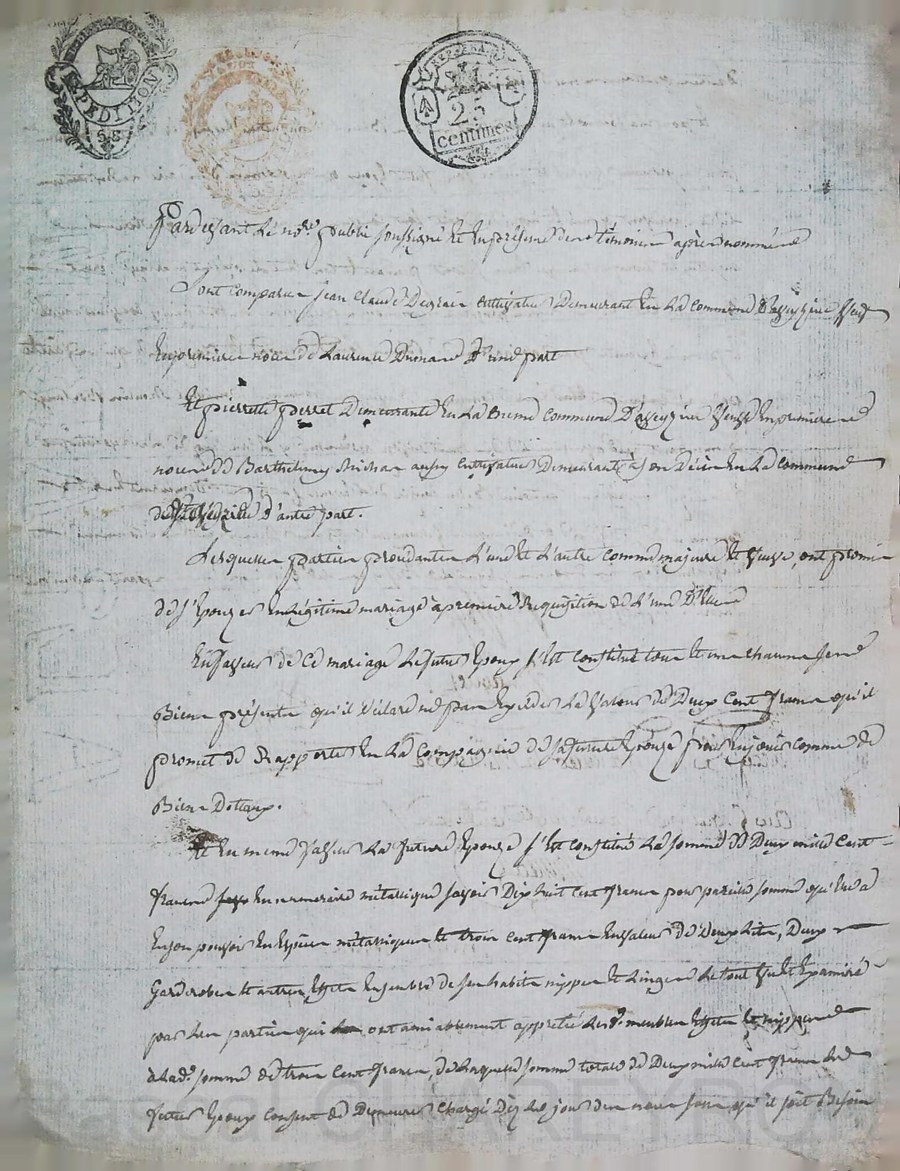 EXPEDITION
REP. FRA.
25
centimes
Pardevant Le no.re public soussigné et en présence des témoins après nommés
Sont comparus Jean Claude cultivateur Demeurant En La commune veuf
En premiere noces de Laurence D'une part
Et pierrette perret Demeurante En La meme commune veuve En premiere
noces de Barthelemy Michon aussy cultivateur Demeurant à son Décès En La commune
d'autre part.
Lesquelles parties procedantes L'une et L'autre comme majeure et veuve, ont promis
de s'Epouzer En Légitime mariage à premiere Requisition de L'une D'elles
En faveur de Ce mariage Le futur Epoux s'Est Constitué tous et un chacuns ses
Biens présents qu'il déclare ne pas Exceder La valeur de Deux Cent francs qu'il
promet de Rapporter En La Compagnie de sa future Epouze pour En jouir comme de
Biens Dotaux.
Et En meme faveur La future Epouze s'Est Constitué La somme de Deux mille Cent
francs En numeraire métallique savoir Dix huit Cent francs pour pareille somme qu'Elle a
En son pouvoir En Espèces métalliques et trois Cent francs En valeur de Deux Lits, Deux
Garderobes et autres Effets Ensemble de ses habits nippes et Linges Le tout vu et Examiné
par Les parties qui ont amiablement apprecié Lesd. meubles Effets et nippes
à Lad. somme de trois Cent francs, de Laquelle somme totale de Deux mille Cent francs Led.
futur Epoux Consent de Demeurer Chargé Dès Le jour des noces sans qu'il soit Besoin